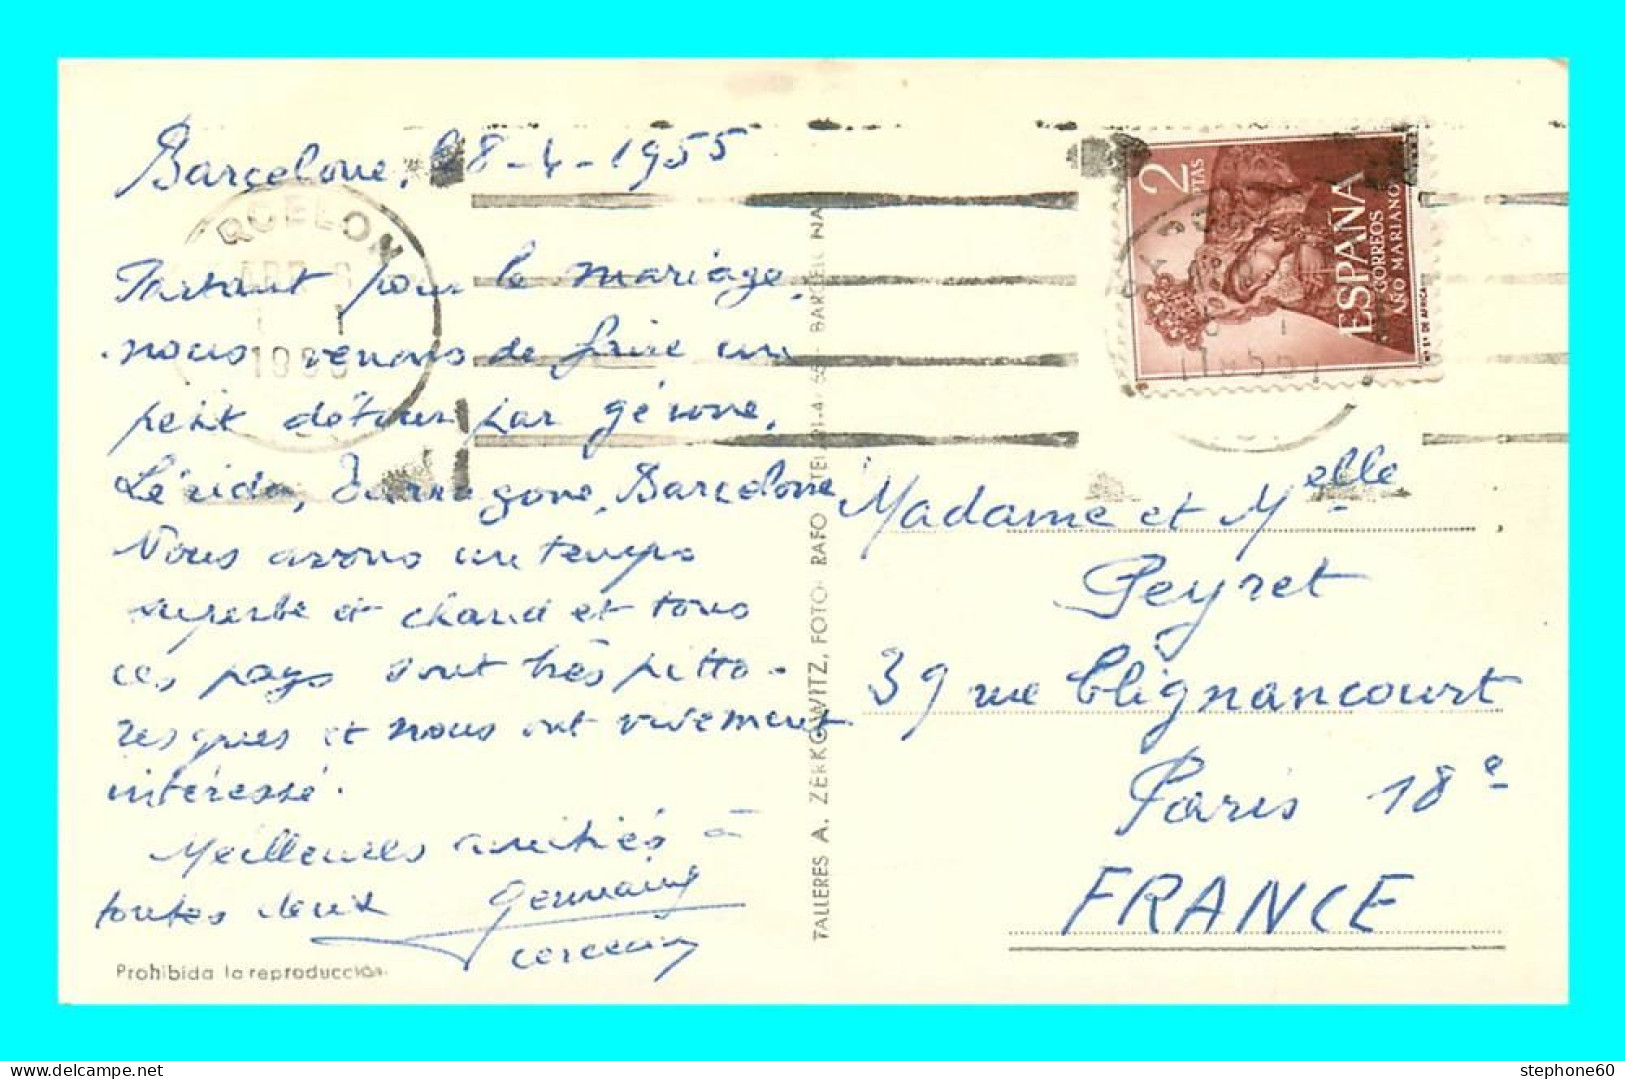 Barcelone, 8-4-1955
Partant pour le mariage,
nous venons de faire un
petit détour par gérone,
Lérida, Tarragone, Barcelone
Nous avons un temps
superbe et chaud et tous
ces pays sont très pitto-
resques et nous ont vivement
intéressé.
Meilleures amitiés à
toutes deux
Germaine
Prohibida la reproducción
TALLERES A. ZERKOWITZ, FOTO RAFO
2 PTAS
ESPAÑA
CORREOS
AÑO MARIANO
Nª Sª DE AFRICA
Madame et Melle
Peyret
39 rue Clignancourt
Paris 18e
FRANCE
stephone60